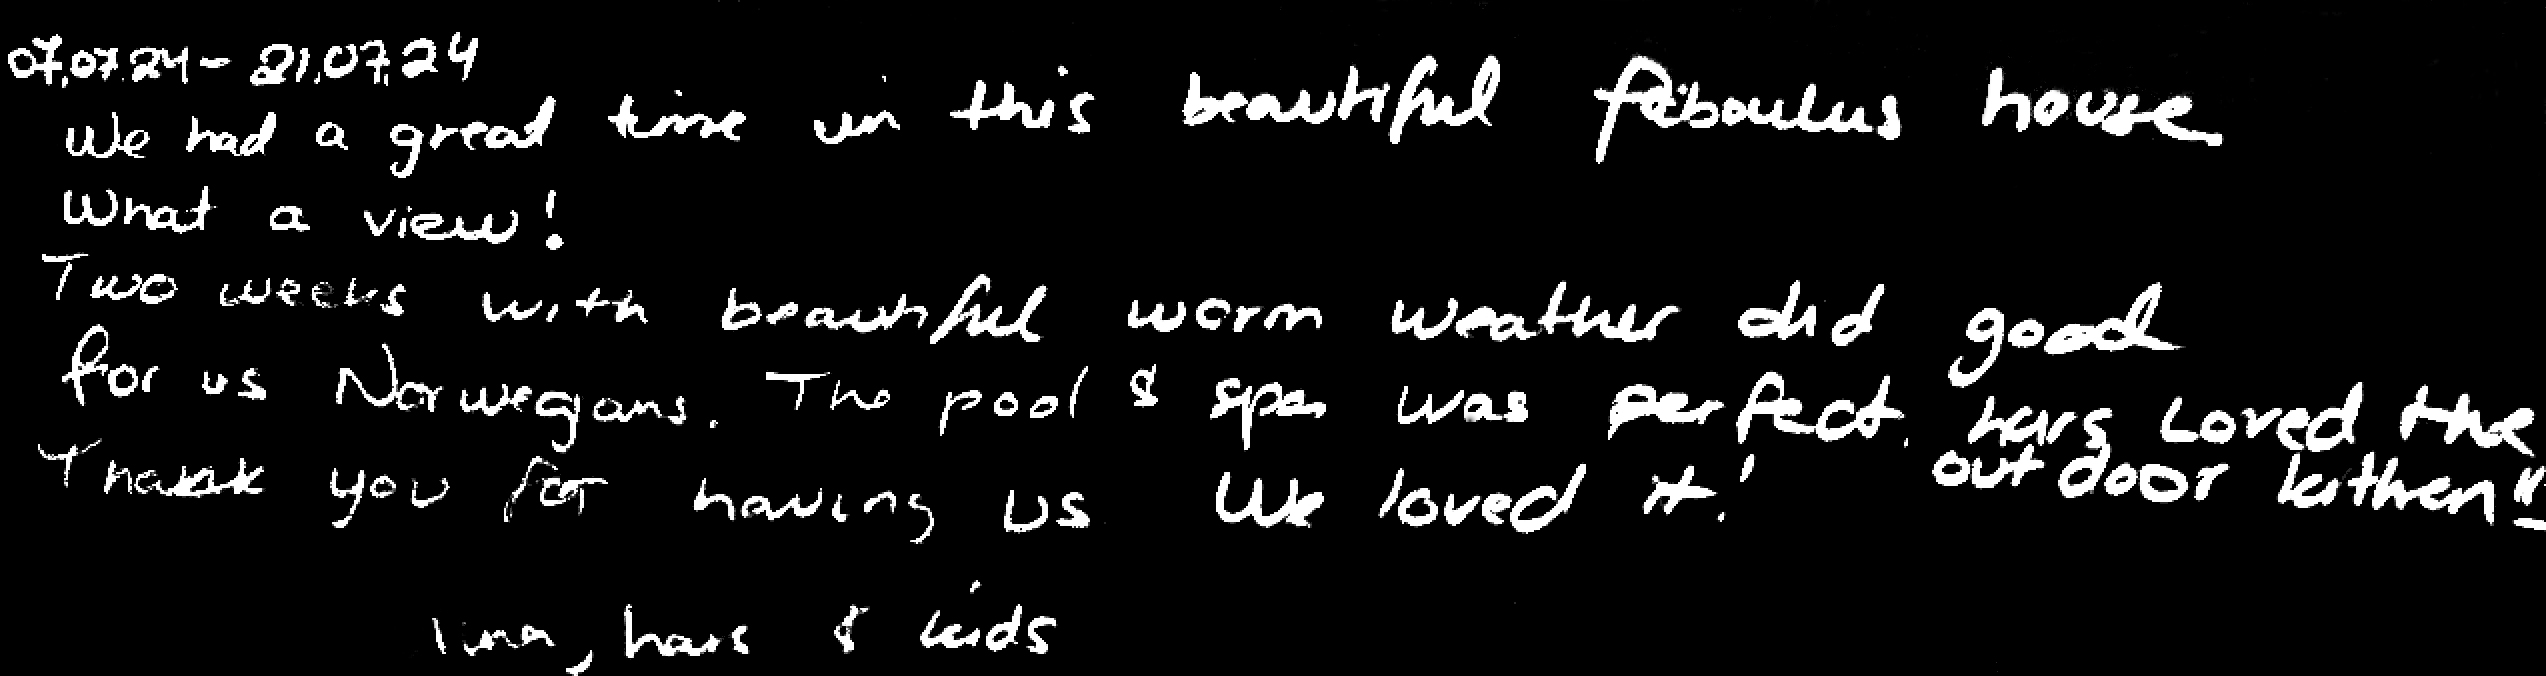 07.07.24 - 21.07.24
We had a great time in this beautiful faboulus house
What a view!
Two weeks with beautiful warm weather did good
for us Norwegans. The pool & spa was perfect. Lars Loved the
outdoor kithen"
Thank you for having us We loved it!
Lina, Lars & kids